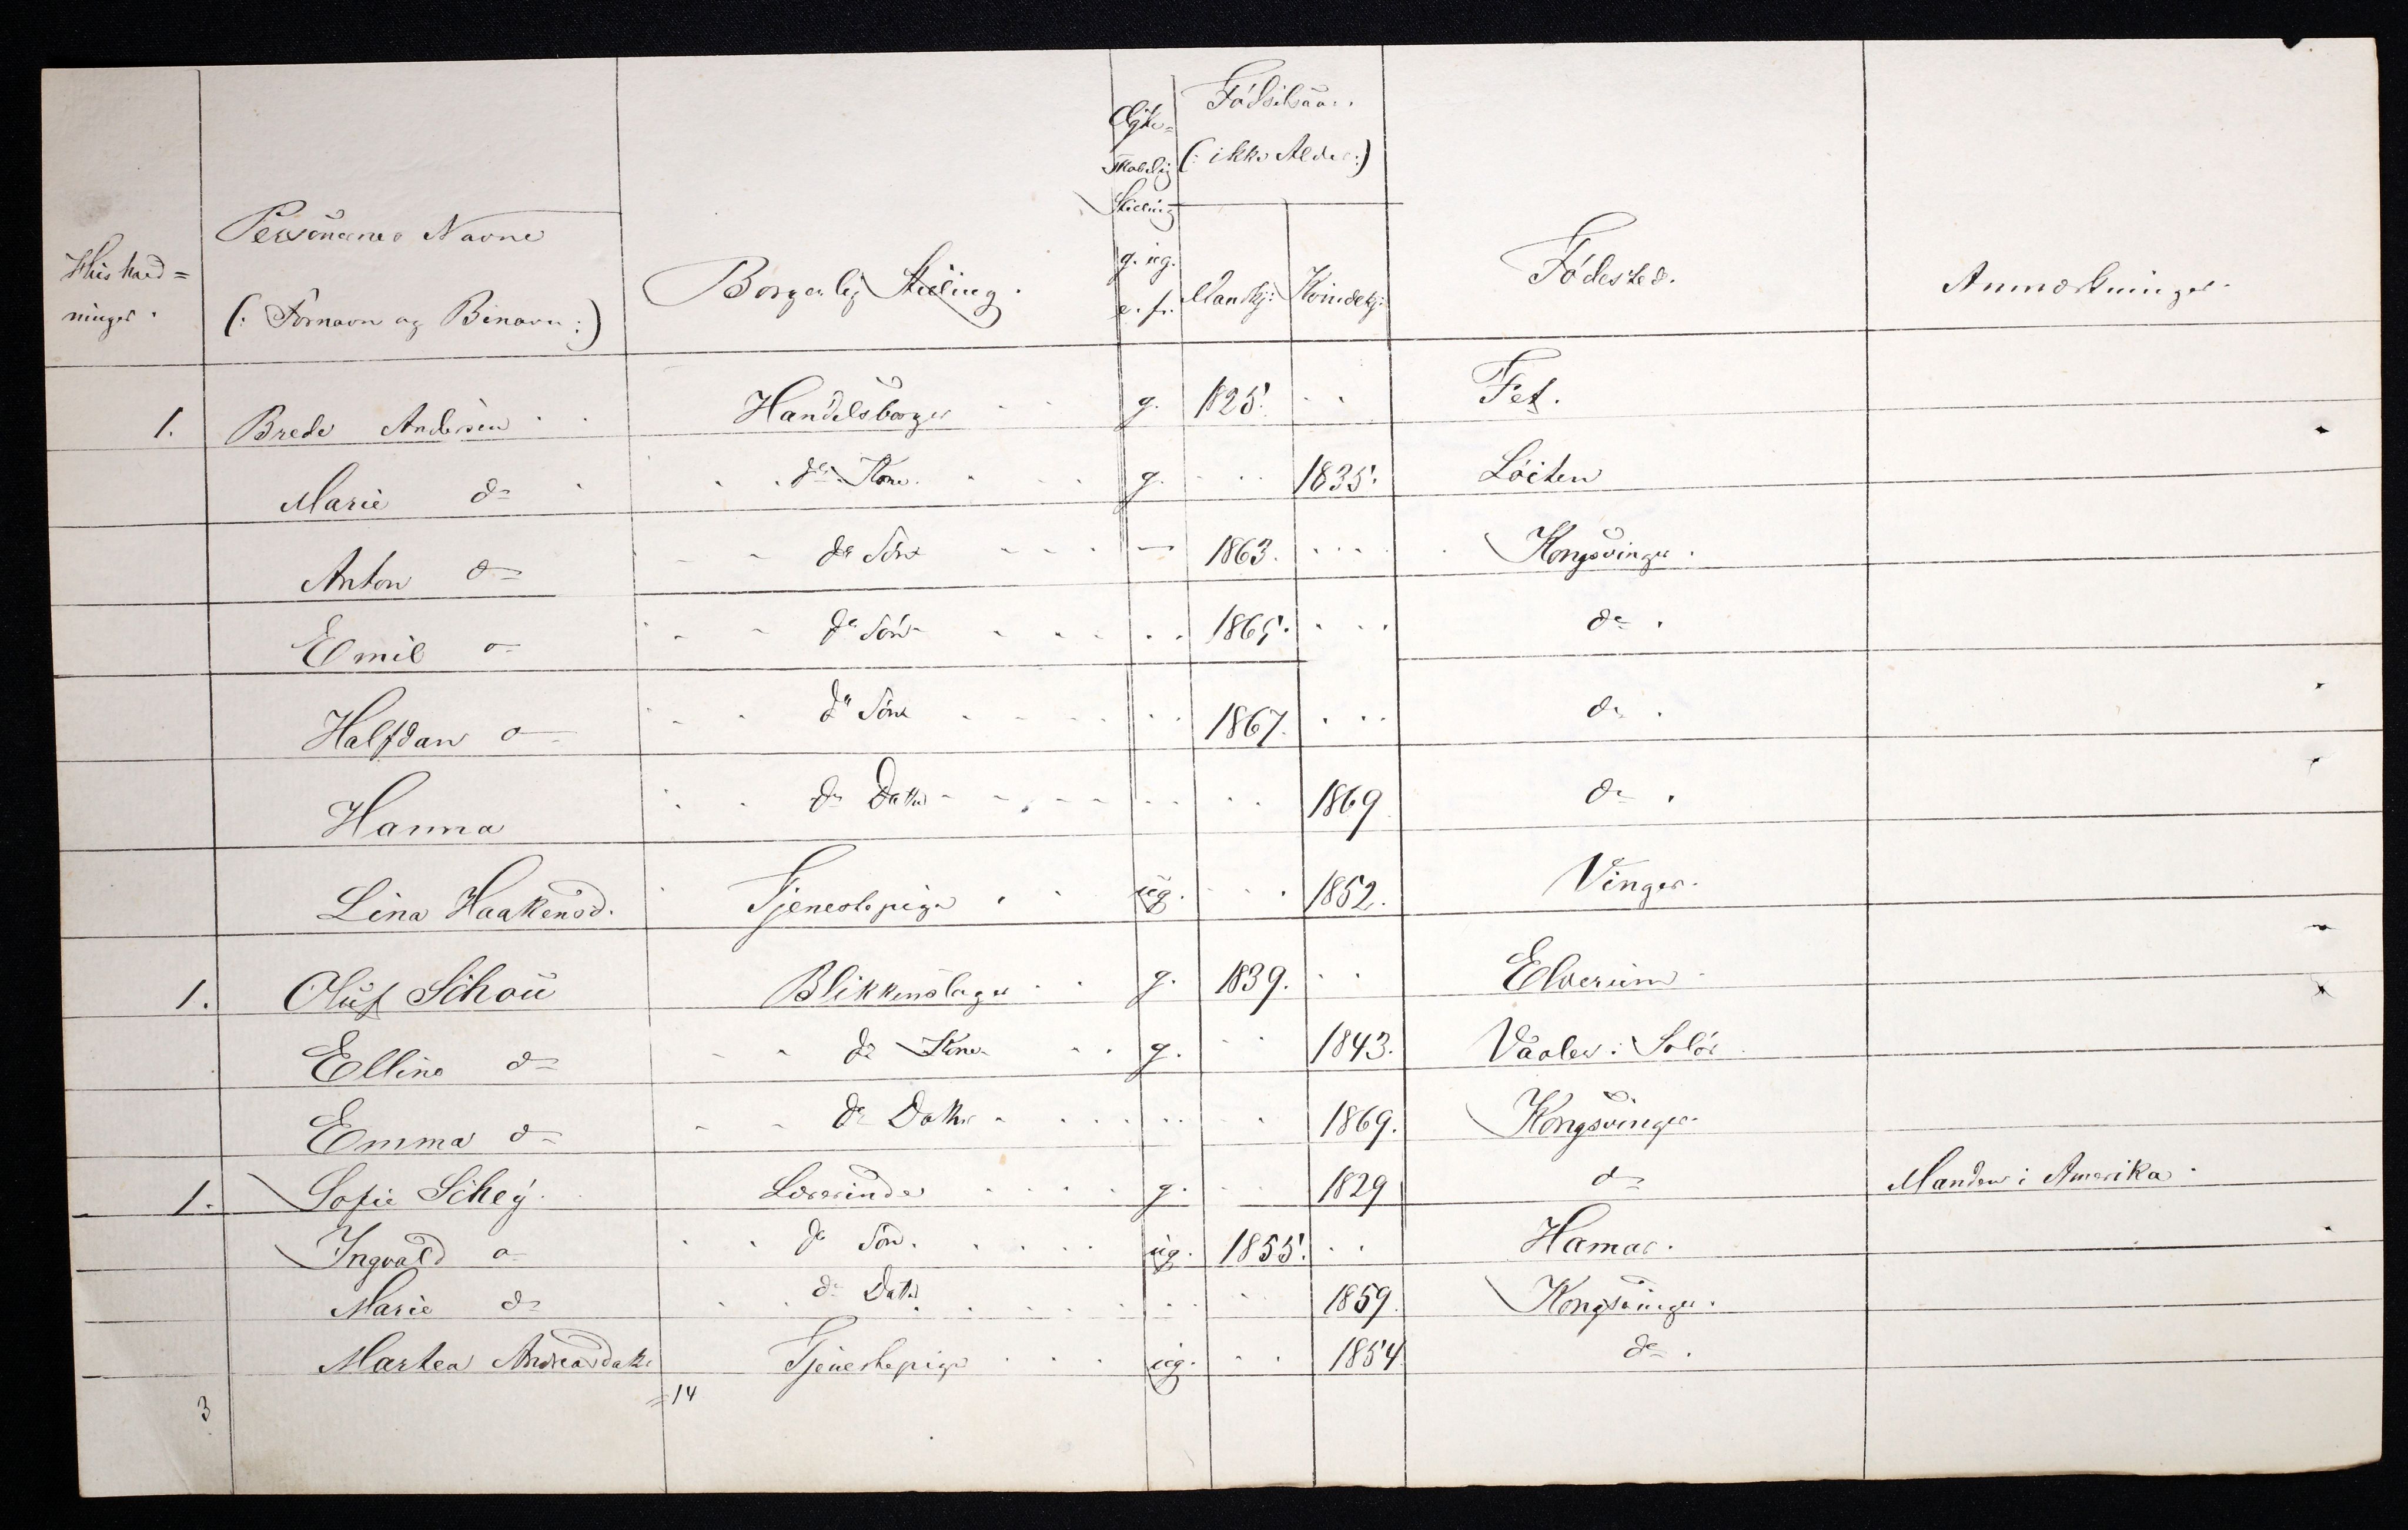 Huushold=
ninger.
Personernes Navne
(: Fornavn og Binavn :)
Borgerlig Stilling.
Ægte=
skabelig
Stilling
g. ug.
e. f.
Fødselsaar.
(: ikke Alder :)
Mandkj:
Kvindekj:
Fødested.
Anmærkninger.
1. Brede Andersen Handelsborger g. 1825. Fet.
Marie do do Kone g. 1835. Löiten
Anton do do Sön 1863. Kongsvinger.
Emil do do Sön 1865. do.
Halfdan do do Sön 1867. do.
Hanna do Datter 1869 do.
Lina Haakensd. Tjenestepige ug. 1852. Vinger.
1. Oluf Schou Blikkenslager g. 1839. Elverum
Elline do do Kone g. 1843. Vaaler i Solör
Emma do do Datter 1869. Kongsvinger
1. Sofie Schey. Lærerinde g. 1829 do Manden i Amerika.
Ingvald do do Sön. ug. 1855. Hamar.
Marie do do Datter 1859. Kongsvinger.
Marthea Andreasdatter Tjenestepige ug. 1854 do.
3 =14